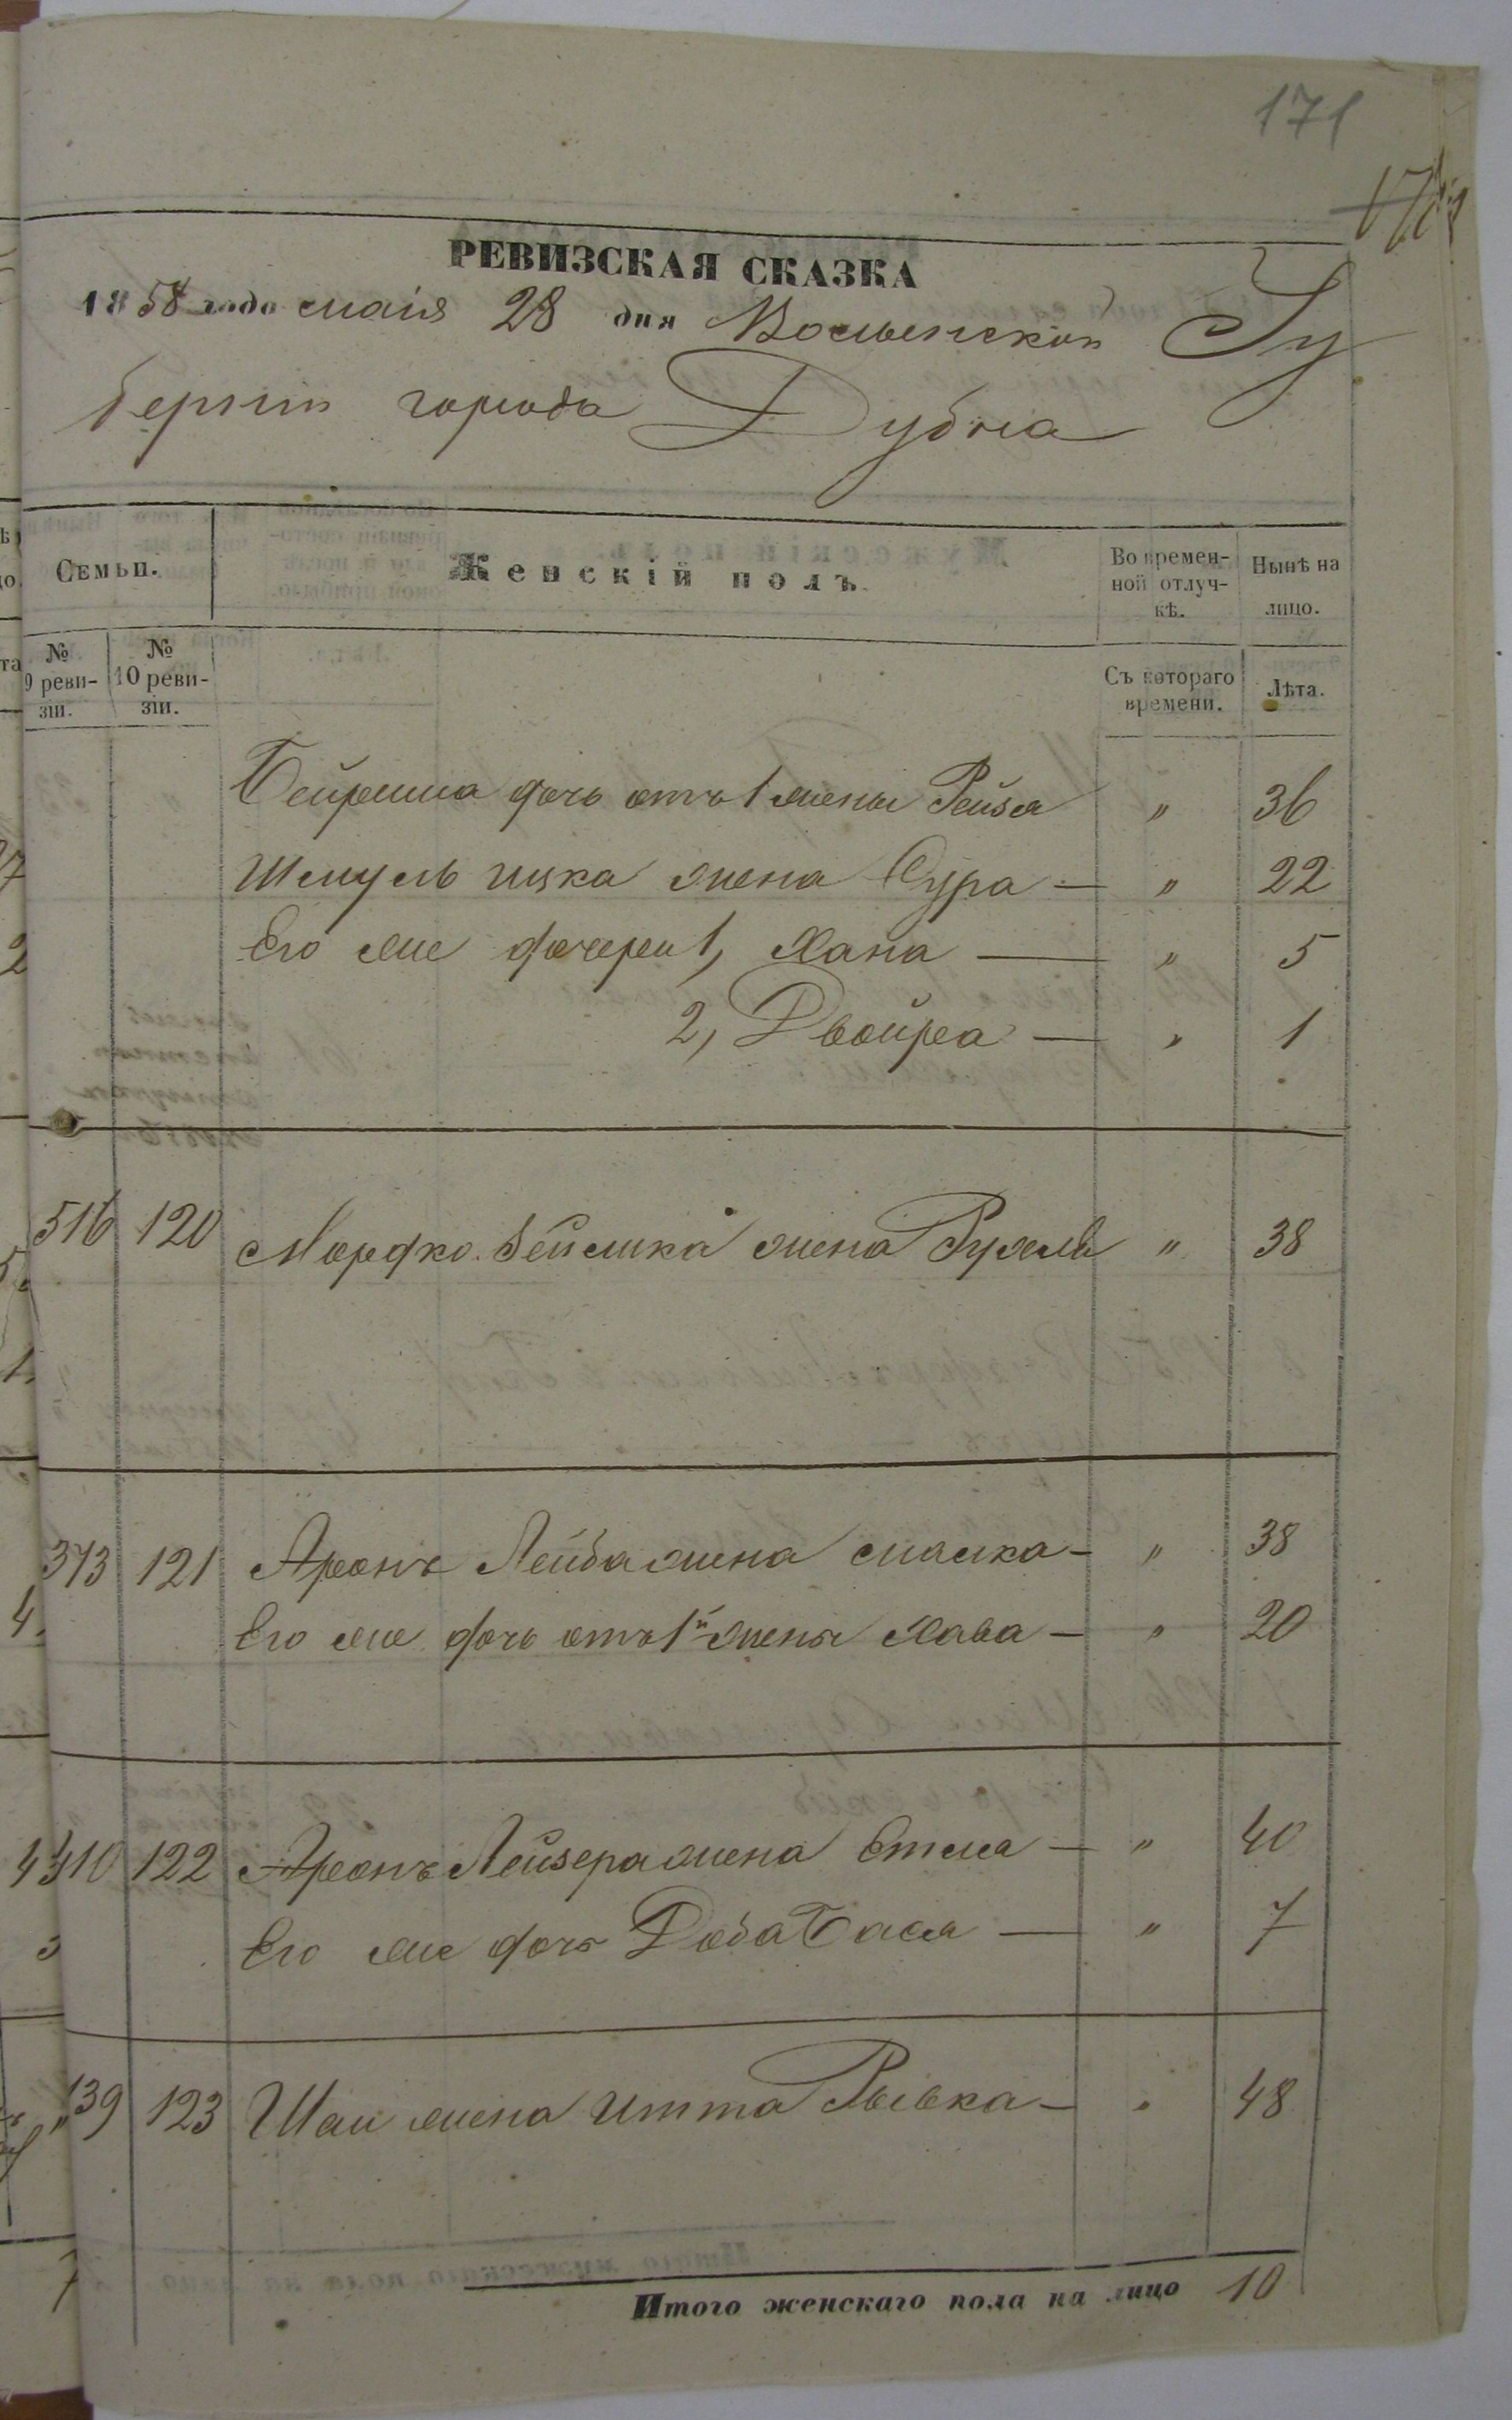 171
РЕВИЗСКАЯ СКАЗКА
1858 года маія 28 дня Волынской Гу
берніи города Дубна
Семьи.
Женскій полъ.
Во времен-
ной отлуч-
кѣ.
Нынѣ на
лицо.
№
9 реви-
зіи.
№
10 реви-
зіи.
Съ котораго
времени.
Лѣта.
дочь отъ 1 жены Рейзя " 36
Шмуль Ицка жена Сура — " 22
Его же дочери 1, Хана — " 5
2, Двойра — " 1
516 120 Мордко Бейлика жена Рухля " 38
373 121 Аронъ Лейба жена Малка — " 38
Его же дочь отъ 1й жены Хава — " 20
410 122 Аронъ Лейзера жена Етля — " 40
Его же дочь Доба Бася — " 7
139 123 Шаи жена Итта Рывка — " 48
Итого женскаго пола на лицо 10